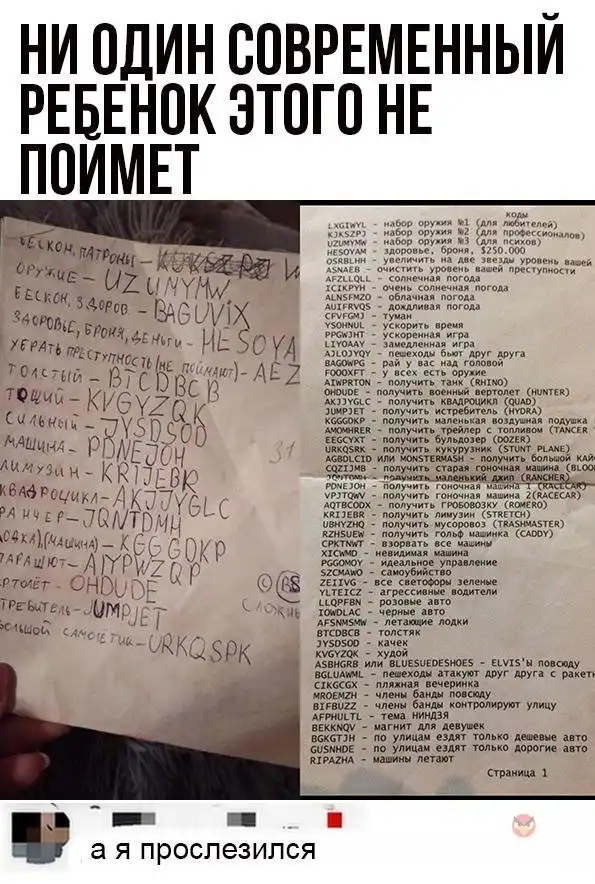 НИ ОДИН СОВРЕМЕННЫЙ
РЕБЕНОК ЭТОГО НЕ
ПОЙМЕТ
БЕСКОН. ПАТРОНЫ –
ОРУЖИЕ – UZUMYMW
БЕСКОН, ЗДОРОВ. – BAGUVIX
ЗДОРОВЬЕ, БРОНЯ, ДЕНЬГИ – HESOYA
УБРАТЬ ПРЕСТУПНОСТЬ (НЕ ПОЙМАЮТ) – AEZ
ТОЛСТЫЙ – BTCDBCB
ТОЩИЙ – KVGYZQK
СИЛЬНЫЙ – JYSDSOD
МАШИНА – PDNEJOH
ЛИМУЗИН – KRIJEBR
КВАДРОЦИКЛ – AKJJYGLC
РАНЧЕР – JQNTDMH
ОДКА)(МАШИНА) – KGGGDKP
ПАРАШЮТ – AIYPWZQP
РТОЛЁТ – OHDUDE
ТРЕБИТЕЛЬ – JUMPJET
БОЛЬШОЙ САМОЛЁТИК – URKQSPK
31
СЛОЖНЫ
коды
LXGIWYL - набор оружия №1 (для любителей)
KJKSZPJ - набор оружия №2 (для профессионалов)
UZUMYMW - набор оружия №3 (для психов)
HESOYAM - здоровье, броня, $250.000
OSRBLHH - увеличить на две звезды уровень вашей
ASNAEB - очистить уровень вашей преступности
AFZLLQLL - солнечная погода
ICIKPYH - очень солнечная погода
ALNSFMZO - облачная погода
AUIFRVQS - дождливая погода
CFVFGMJ - туман
YSOHNUL - ускорить время
PPGWJHT - ускоренная игра
LIYOAAY - замедленная игра
AJLOJYQY - пешеходы бьют друг друга
BAGOWPG - рай у вас над головой
FOOOXFT - у всех есть оружие
AIWPRTON - получить танк (RHINO)
OHDUDE - получить военный вертолет (HUNTER)
AKJJYGLC - получить КВАДРОЦИКЛ (QUAD)
JUMPJET - получить истребитель (HYDRA)
KGGGDKP - получить маленькая воздушная подушка
AMOMHRER - получить трейлер с топливом (TANCER
EEGCYXT - получить бульдозер (DOZER)
URKQSRK - получить кукурузник (STUNT PLANE)
AGBDLCID ИЛИ MONSTERMASH - получить большой кай
CQZIJMB - получить старая гоночная машина (BLOO
JQNTDMH - получить маленький джип (RANCHER)
PDNEJOH - получить гоночная машина 1 (RACECAR)
VPJTQWV - получить гоночная машина 2(RACECAR)
AQTBCODX - получить ГРОБОВОЗКУ (ROMERO)
KRIJEBR - получить лимузин (STRETCH)
UBHYZHQ - получить мусоровоз (TRASHMASTER)
RZHSUEW - получить гольф машинка (CADDY)
CPKTNWT - взорвать все машины
XICWMD - невидимая машина
PGGOMOY - идеальное управление
SZCMAWO - самоубийство
ZEIIVG - все светофоры зеленые
YLTEICZ - агрессивные водители
LLQPFBN - розовые авто
IOWDLAC - черные авто
AFSNMSMW - летающие лодки
BTCDBCB - толстяк
JYSDSOD - качек
KVGYZQK - худой
ASBHGRB или BLUESUEDESHOES - ELVIS'Ы повсюду
BGLUAWML - пешеходы атакуют друг друга с ракетн
CIKGCGX - пляжная вечеринка
MROEMZH - члены банды повсюду
BIFBUZZ - члены банды контролируют улицу
AFPHULTL - тема НИНДЗЯ
BEKKNQV - магнит для девушек
BGKGTJH - по улицам ездят только дешевые авто
GUSNHDE - по улицам ездят только дорогие авто
RIPAZHA - машины летают
Страница 1
а я прослезился